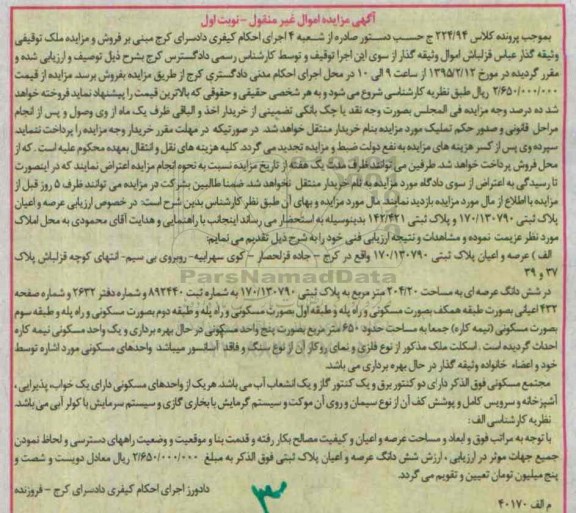 آگهی مزایده اموال غیر منقول - نوبت اول
بموجب پرونده کلاس ۲۲۴/۹۴ ج حسب دستور صادره از شعبه ۴ اجرای احکام کیفری دادسرای کرج مبنی بر فروش و مزایده ملک توقیفی
وثیقه گذار عباس قزلباش اموال وثیقه گذار از سوی این اجرا توقیف و توسط کارشناس رسمی دادگسترس کرج بشرح ذیل توصیف و ارزیابی شده و
مقرر گردیده در مورخ ۱۳۹۵/۲/۱۲ از ساعت ۹ الی ۱۰ در محل اجرای احکام مدنی دادگستری کرج از طریق مزایده بفروش برسد. مزایده از قیمت
۲/۶۵۰/۰۰۰/۰۰۰ ریال طبق نظریه کارشناسی شروع می شود و به هر شخصی حقیقی و حقوقی که بالاترین قیمت را پیشنهاد نماید فروخته خواهد
شد ده درصد وجه مزایده فی المجلس بصورت وجه نقد یا چک بانکی تضمینی از خریدار اخذ و الباقی ظرف یک ماه از وی وصول و پس از انجام
مراحل قانونی و صدور حکم تملیک مورد مزایده بنام خریدار منتقل خواهد شد. در صورتیکه در مهلت مقرر خریدار وجه مزایده را پرداخت ننماید
سپرده وی پس از کسر هزینه های مزایده به نفع دولت ضبط و مزایده تجدید می گردد. کلیه هزینه های نقل و انتقال بعهده محکوم علیه است. که از
محل فروش پرداخت خواهد شد. طرفین می توانند ظرف مدت یک هفته از تاریخ مزایده نسبت به نحوه انجام مزایده اعتراض نمایند که در اینصورت
تا رسیدگی به اعتراض از سوی دادگاه مورد مزایده به نام خریدار منتقل نخواهد شد. ضمنا طالبین بشرکت در مزایده می توانند ظرف ۵ روز قبل از
مزایده با اطلاع از مال مورد مزایده بازدید نمایند. مال مورد مزایده و بهای آن طبق نظر کارشناس بدین شرح است: در خصوص ارزیابی عرصه و اعیان
پلاک ثبتی ۱۷۰/۱۳۰۷۹۰ و پلاک ثبتی ۱۴۲/۴۲۱ بدینوسیله به استحضار می رساند اینجانب با راهنمایی و هدایت آقای محمودی به محل املاک
مورد نظر عزیمت نموده و مشاهدات و نتیجه ارزیابی فنی خود را به شرح ذیل تقدیم می نمایم:
الف) عرصه و اعیان پلاک ثبتی ۱۷۰/۱۳۰۷۹۰ واقع در کرج - جاده قزلحصار - کوی سهرابیه- روبروی بی سیم- انتهای کوچه قزلباش پلاک
۳۷ و ۳۹
ParsNamadData
در شش دانگ عرصه ای به مساحت ۲۰۴/۲۰ متر مربع به پلاک ثبتی ۱۷۰/۱۳۰۷۹۰ به شماره ثبت ۸۹۲۴۴۰ و شماره دفتر ۲۶۳۲ و شماره صفحه
۴۳۲ اعیانی بصورت طبقه همکف بصورت مسکونی و راه پله و طبقه اول بصورت مسکونی و راه پله و طبقه دوم بصورت مسکونی و راه پله و طبقه سوم
بصورت مسکونی (نیمه کاره) جمعا به مساحت حدود ۶۵۰ متر مربع بصورت پنج واحد مسکونی در حال بهره برداری و یک واحد مسکونی نیمه کاره
احداث گردیده است. اسکلت ملک مذکور از نوع فلزی و نمای روکار آن از نوع سنگ و فاقد آسانسور میباشد واحدهای مسکونی مورد اشاره توسط
خود و اعضاء خانواده وثیقه گذار در حال بهره برداری می باشد.
مجتمع مسکونی فوق الذکر دارای دو کنتور برق و یک کنتور گاز و یک انشعاب آب می باشد. هریک از واحدهای مسکونی دارای یک خواب، پذیرایی،
آشپزخانه و سرویس کامل و پوشش کف آن از نوع سیمان و روی آن موکت و سیستم گرمایش با بخاری گازی و سیستم سرمایش با کولر آبی می باشد.
نظریه کارشناسی الف:
با توجه به مراتب فوق و ابعاد و مساحت عرصه و اعیان و کیفیت مصالح بکار رفته و قدمت بنا و موقعیت و وضعیت راههای دسترسی و لحاظ نمودن
جمیع جهات موثر در ارزیابی، ارزش شش دانگ عرصه و اعیان پلاک ثبتی فوق الذکر به مبلغ ۲/۶۵۰/۰۰۰/۰۰۰ ریال معادل دویست و شصت و
پنج میلیون تومان تعیین و تقویم می گردد.
دادورز اجرای احکام کیفری دادسرای کرج - فروزنده
م الف ۴۰۱۷۰